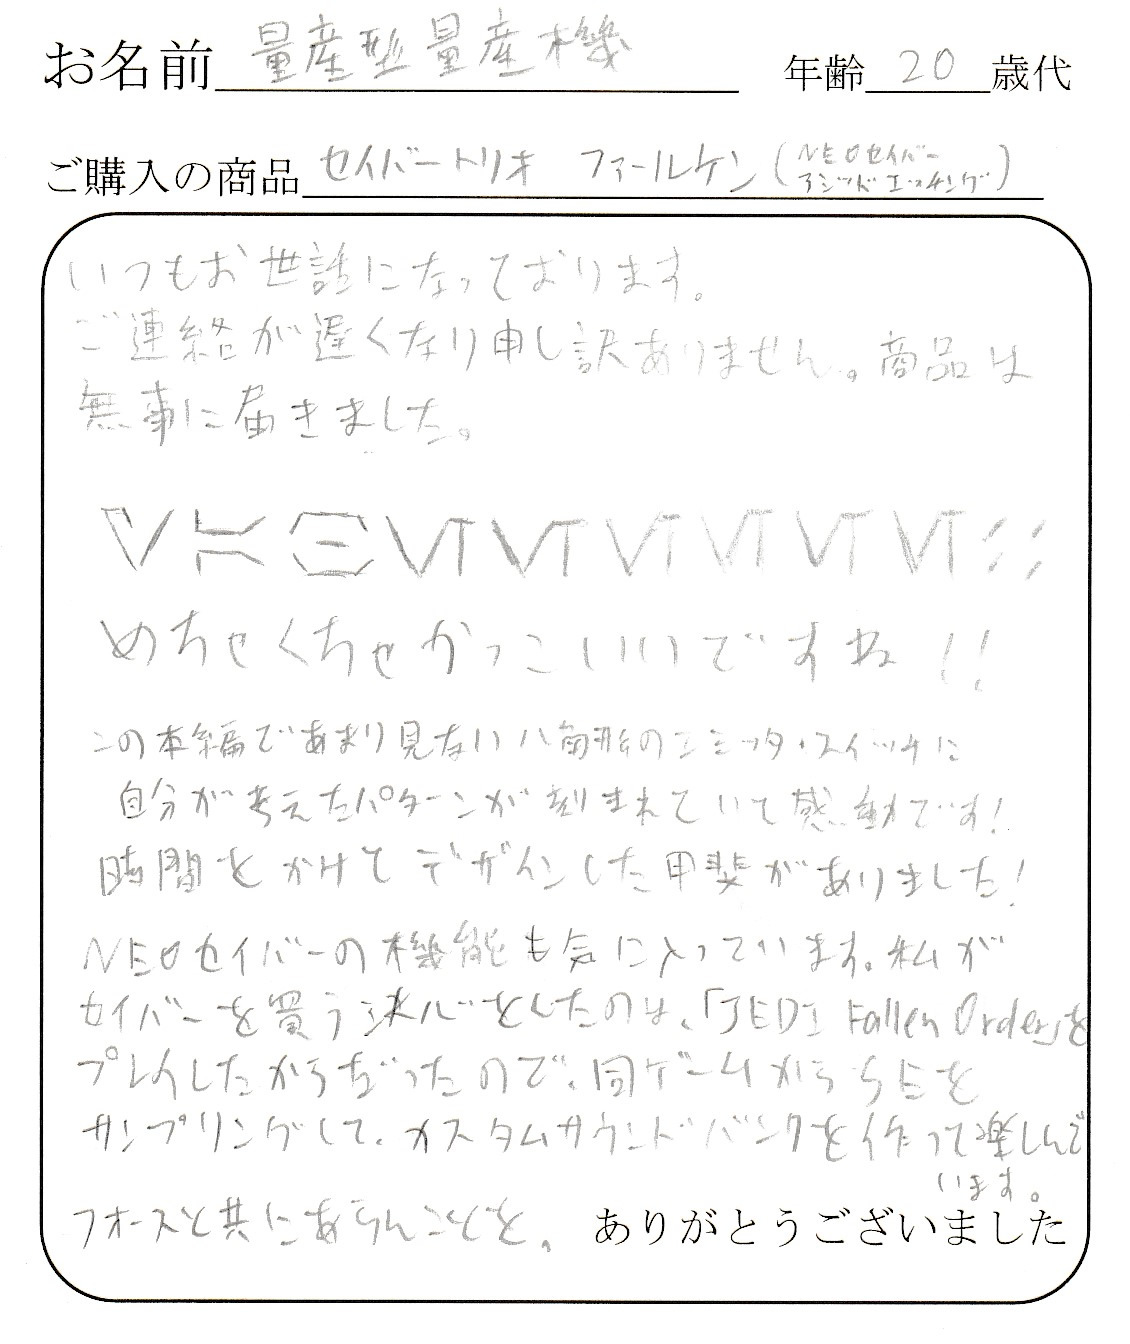 お名前 量産型量産機 年齢 20 歳代
ご購入の商品 セイバートリオ ファールケン(NEOセイバー
アシッドエッチング)
いつもお世話になっております。
ご連絡が遅くなり申し訳ありません。商品は
無事に届きました。
めちゃくちゃかっこいいですね!!
この本編であまり見ない八角形のエミッタ・スイッチに
自分が考えたパターンが刻まれていて感動です!
時間をかけてデザインした甲斐がありました!
NEOセイバーの機能も気に入っています。私が
セイバーを買う決心をしたのは、「JEDI Fallen Order」を
プレイしたからだったので、同ゲームからSEを
サンプリングして、カスタムサウンドバンクを作って楽しんで
います。
フォースと共にあらんことを。 ありがとうございました